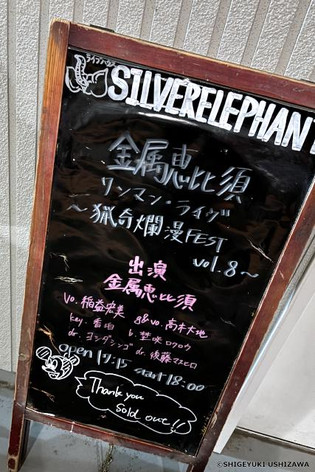 ライブハウス
SILVERELEPHANT
金属恵比須
ワンマン・ライヴ
〜猟奇爛漫FEST
vol.8〜
出演
金属恵比須
vo.稲益宏美 g&vo.高木大地
key.宮嶋 b.埜咲ロクロウ
dr.ヨシダシンゴ dr.後藤マスヒロ
open 17:15 start 18:00
Thank you
Sold out!!
©SHIGEYUKI USHIZAWA